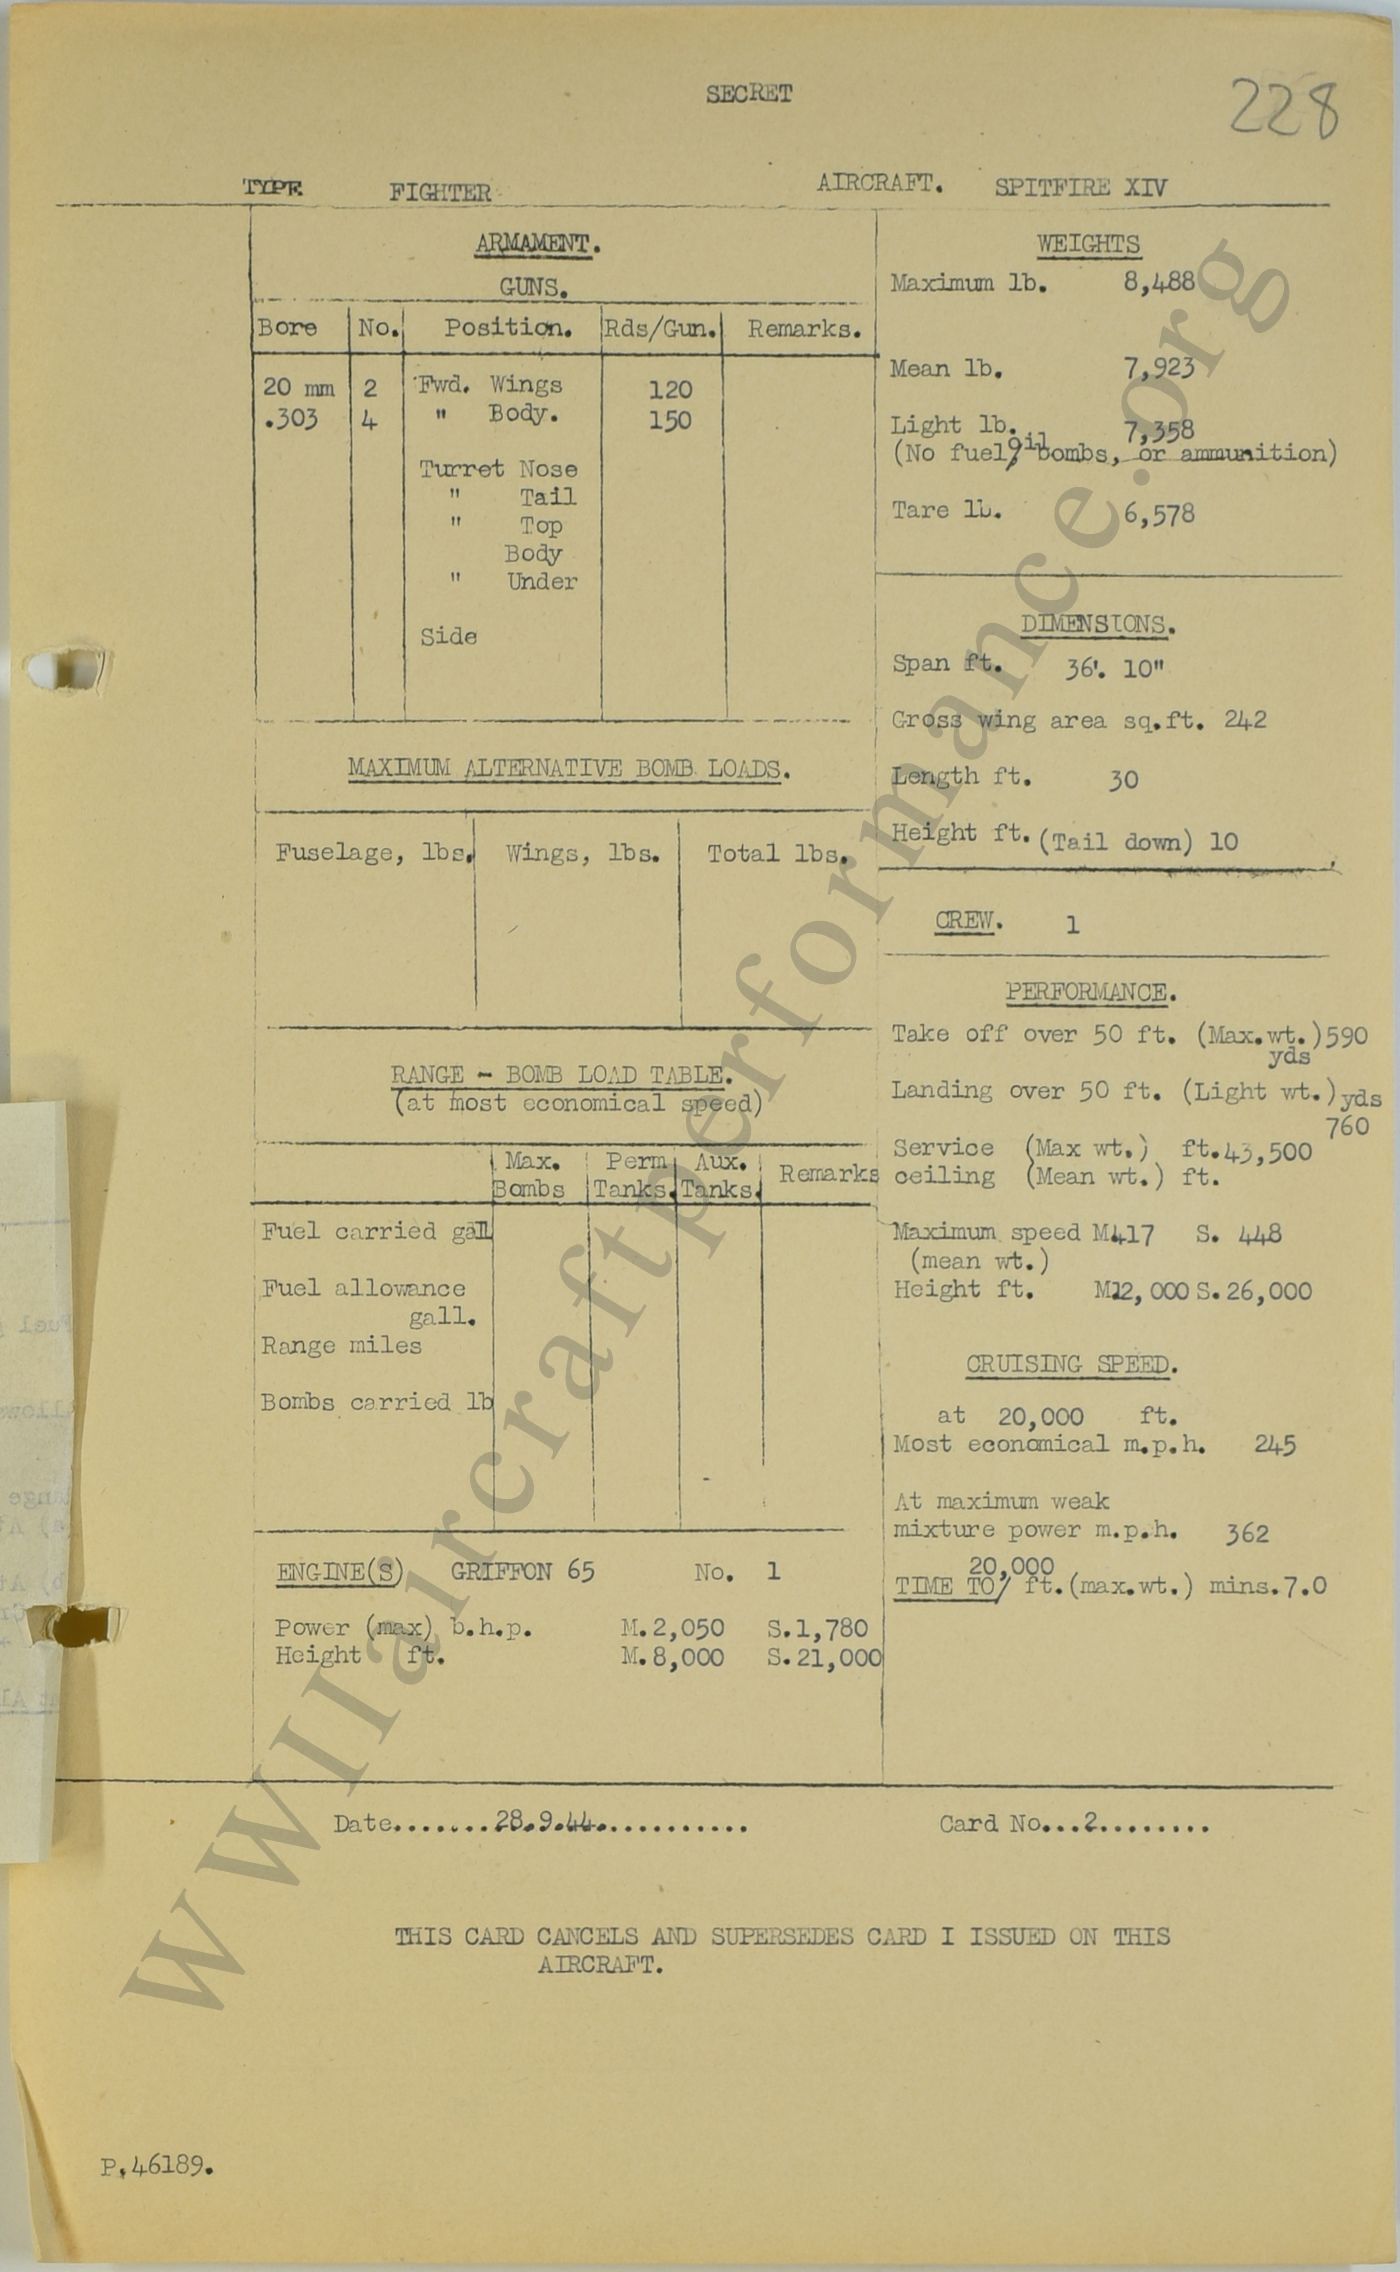 SECRET
228
TYPE FIGHTER AIRCRAFT. SPITFIRE XIV
ARMAMENT.
GUNS.
Bore No. Position. Rds/Gun. Remarks.
20 mm 2 Fwd. Wings 120
.303 4 " Body. 150
Turret Nose
" Tail
" Top
Body
" Under
Side
MAXIMUM ALTERNATIVE BOMB LOADS.
Fuselage, lbs. Wings, lbs. Total lbs.
RANGE - BOMB LOAD TABLE.
(at most economical speed)
Max. Bombs Perm Tanks. Aux. Tanks. Remarks
Fuel carried gall
Fuel allowance
gall.
Range miles
Bombs carried lb
ENGINE(S) GRIFFON 65 No. 1
Power (max) b.h.p. M.2,050 S.1,780
Height ft. M.8,000 S.21,000
WEIGHTS
Maximum lb. 8,488
Mean lb. 7,923
Light lb. 7,358
(No fuel, oil bombs, or ammunition)
Tare lb. 6,578
DIMENSIONS.
Span ft. 36'. 10"
Gross wing area sq.ft. 242
Length ft. 30
Height ft. (Tail down) 10
CREW. 1
PERFORMANCE.
Take off over 50 ft. (Max.wt.)590
yds
Landing over 50 ft. (Light wt.)yds
760
Service (Max wt.) ft.43,500
ceiling (Mean wt.) ft.
Maximum speed M417 S. 448
(mean wt.)
Height ft. M12,000 S.26,000
CRUISING SPEED.
at 20,000 ft.
Most economical m.p.h. 245
At maximum weak
mixture power m.p.h. 362
20,000
TIME TO/ ft.(max.wt.) mins.7.0
Date........28.9.44............ Card No...2.........
THIS CARD CANCELS AND SUPERSEDES CARD I ISSUED ON THIS
AIRCRAFT.
P.46189.
WWIIaircraftperformance.org